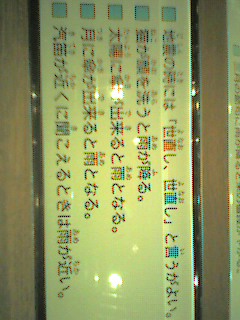 地震の時には「世直し、世直し」と言うがよい。
うと雨が降る。
太陽に傘が出来ると雨となる。
月に傘が出来ると雨となる。
汽笛が近くに聞こえるときは雨が近い。